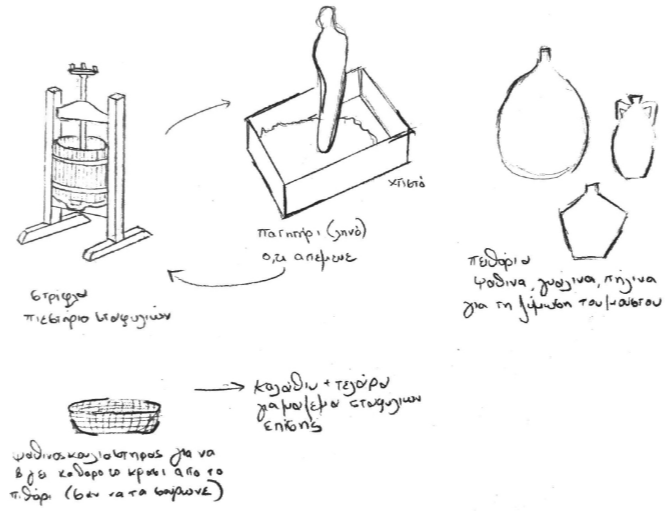 χτιστό
πατητήρι (ληνό)
ό,τι απέμεινε
στρίφλα
πιεστήριο σταφυλιών
πιθάρια
ψάθινα, γυάλινα, πήλινα
για τη ζύμωση του μούστου
καλάθια + τελάρα
για μάζεμα σταφυλιών
επίσης
ψάθινος για να
βγει καθαρό το κρασί από το
πιθάρι (σαν να τα )